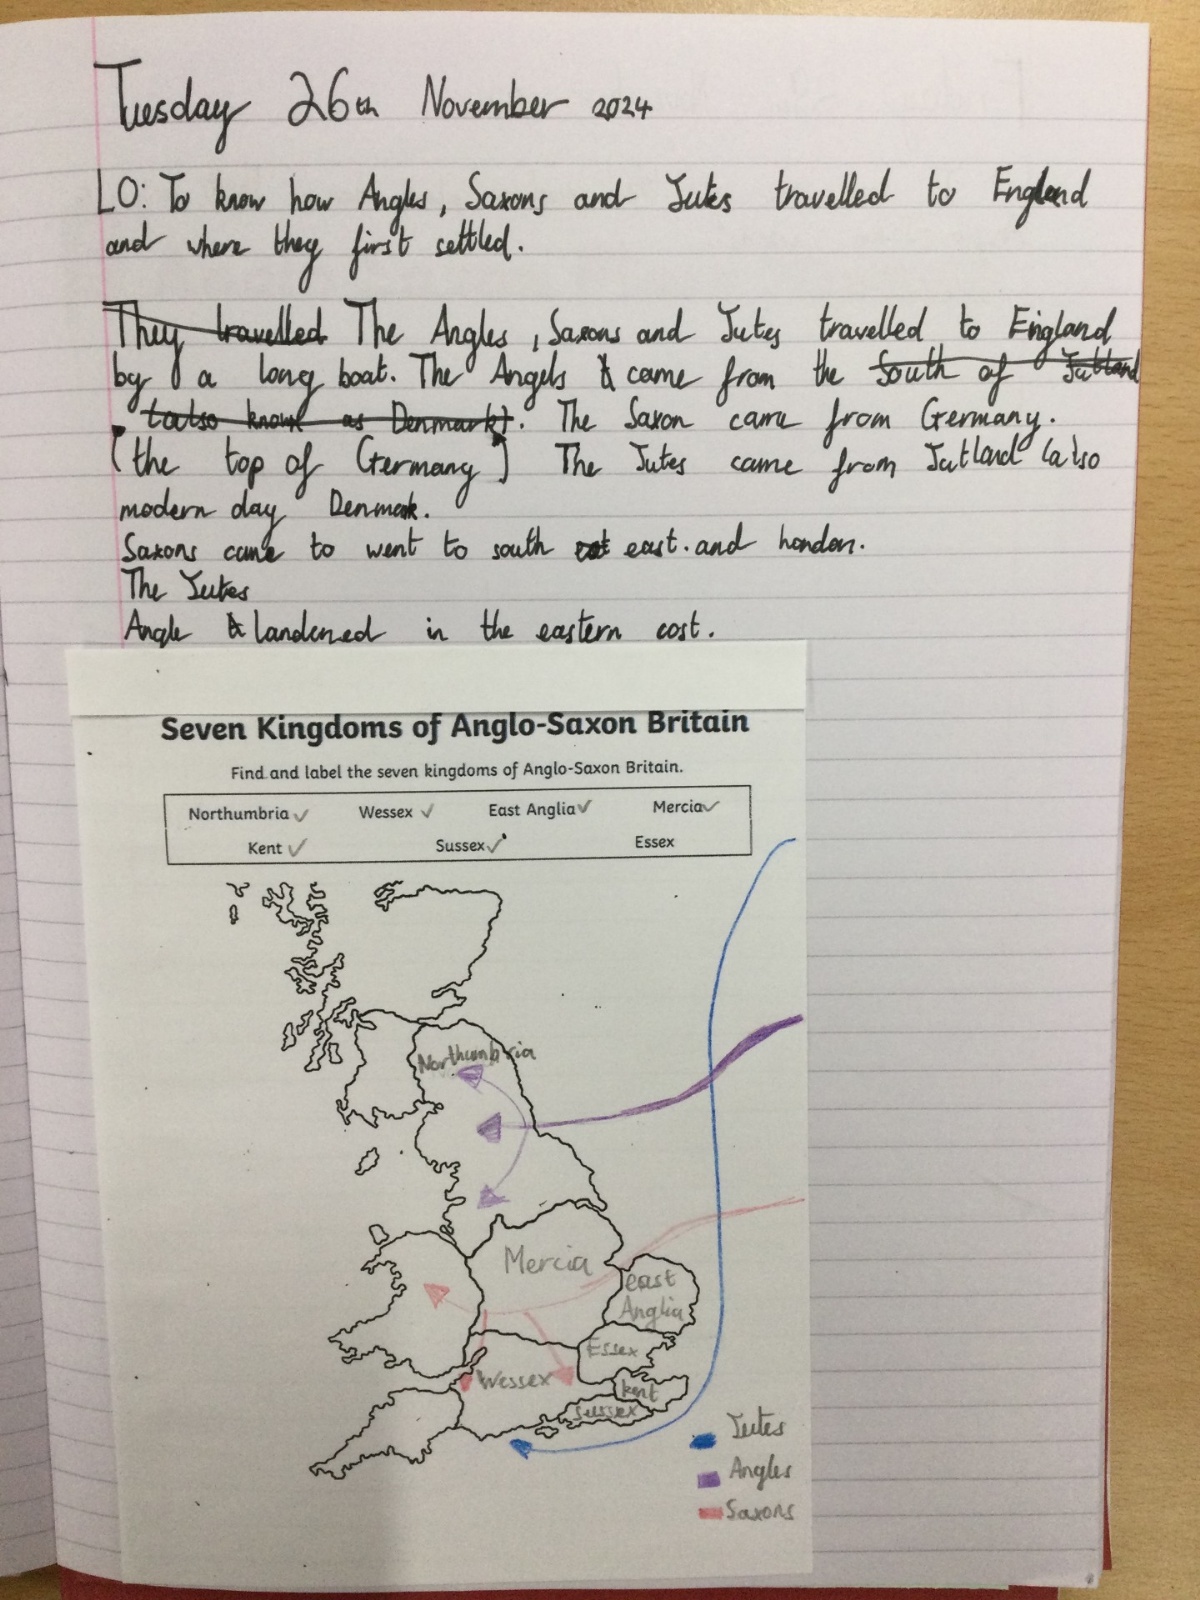 Tuesday 26th November 2024
LO: To know how Angles, Saxons and Jutes travelled to England
and where they first settled.
They travelled The Angles, Saxons and Jutes travelled to England
by a long boat. The Angels came from the South of Jutland
(also know as Denmark). The Saxon came from Germany.
(the top of Germany) The Jutes came from Jutland (also
modern day Denmark.
Saxons came to went to south east. and london.
The Jutes
Angle landened in the eastern cost.
Seven Kingdoms of Anglo-Saxon Britain
Find and label the seven kingdoms of Anglo-Saxon Britain.
Northumbria Wessex East Anglia Mercia
Kent Sussex Essex
Northumbria
Mercia
east
Anglia
Essex
Wessex
kent
sussex
Jutes
Angles
Saxons